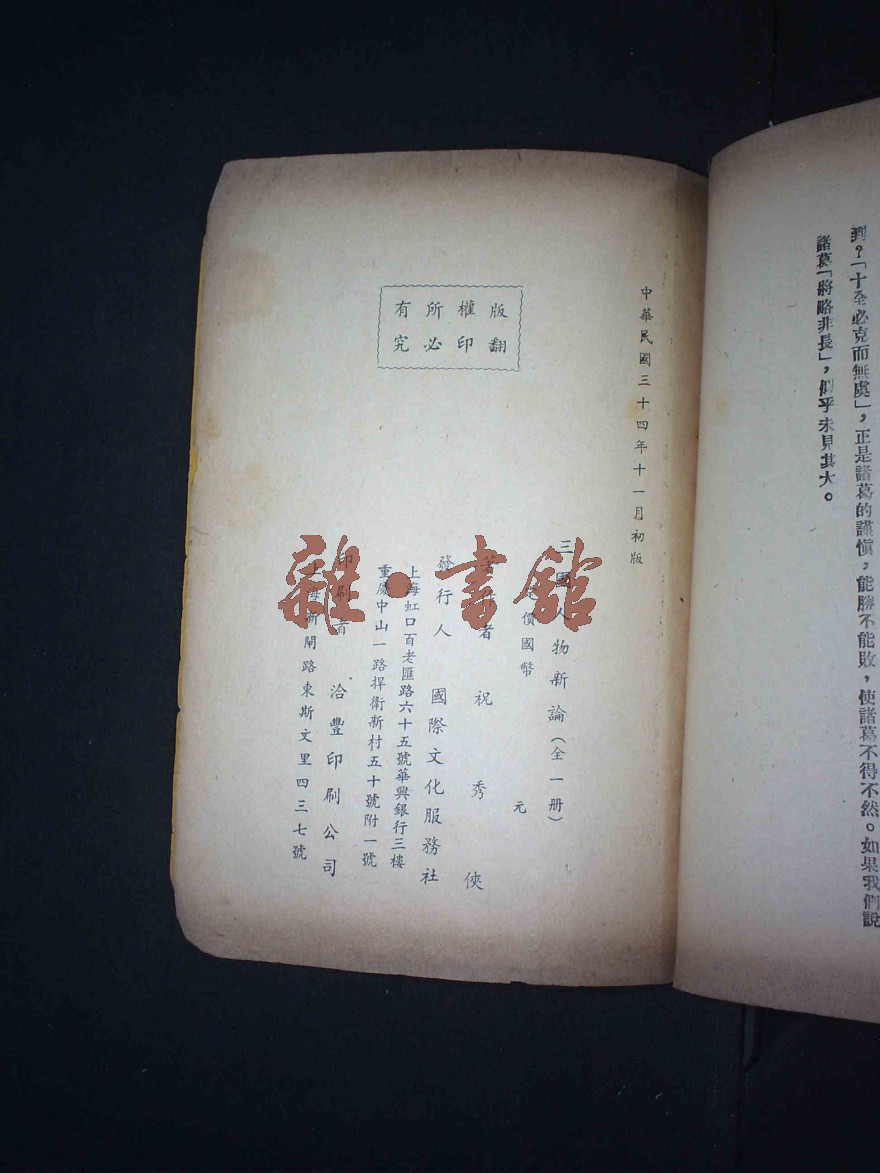 到？「十全必克而無虞」，正是諸葛的謹慎，能勝不能敗，使諸葛不得不然。如果我們說
諸葛「將略非長」，似乎未見其大。
版權所有
翻印必究
中華民國三十四年十一月初版
三國人物新論（全一册）
價國幣　元
著作者　祝秀俠
發行人　國際文化服務社
上海虹口百老匯路六十五號華興銀行三樓
重慶中山一路捍衛新村五十號附一號
印刷者　洽豐印刷公司
上海新閘路東斯文里四三七號
雜·書館